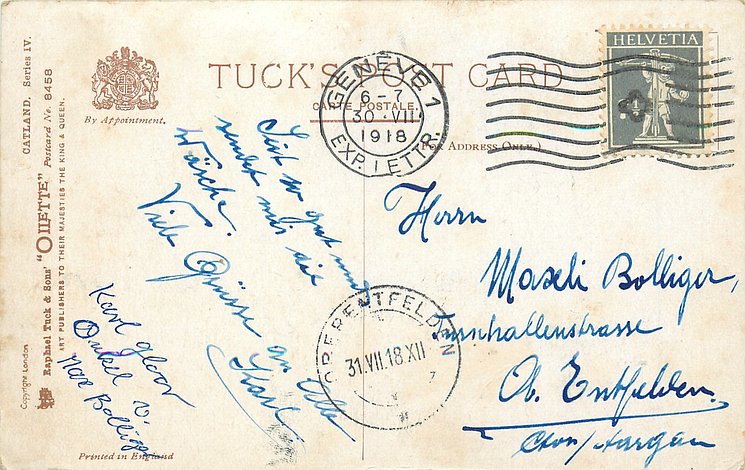 CATLAND. Series IV.
Copyright London
Raphael Tuck & Sons' "OILETTE" Postcard No. 8458
ART PUBLISHERS TO THEIR MAJESTIES THE KING & QUEEN.
By Appointment.
TUCK'S POST CARD
CARTE POSTALE.
(FOR ADDRESS ONLY.)
GENÈVE 1
6-7
30.VII.
1918
EXP. LETTR.
HELVETIA
Seid so gut und
sendet mir die
Wäsche.
Viele Grüsse an Alle
Karl
Karl
Onkel v.
Max Bolliger
Herrn
Maxli Bolliger,
Turnhallenstrasse
Ob. Entfelden
Cton/Aargau
OBERENTFELDEN
31.VII.18.XII
7
Printed in England